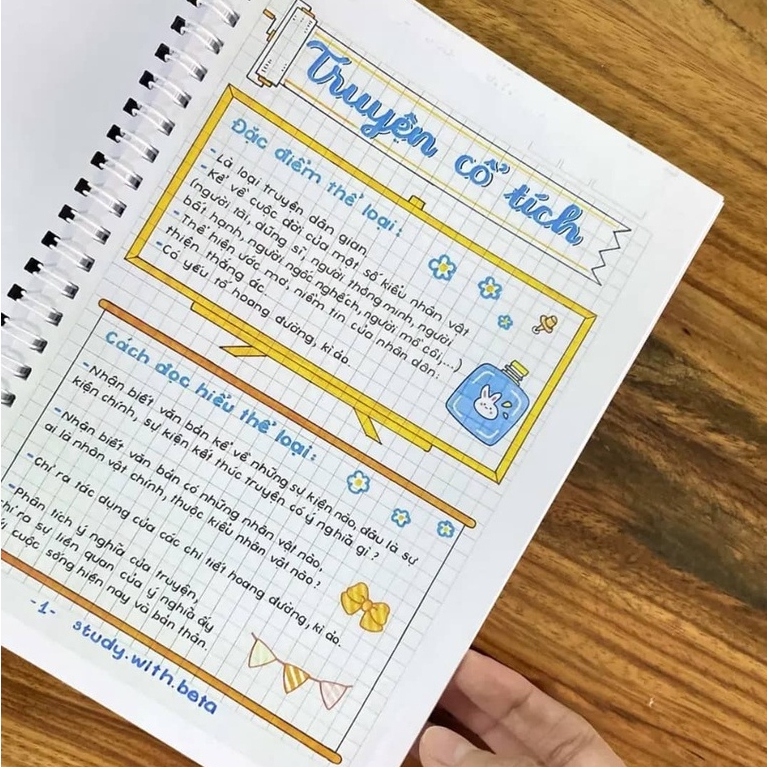 Truyện cổ tích
Đặc điểm thể loại:
- Là loại truyện dân gian.
- Kể về cuộc đời của một số kiểu nhân vật
(người tài, dũng sĩ, người thông minh, người
bất hạnh, người ngốc nghếch, người mồ côi,...)
- Thể hiện ước mơ, niềm tin của nhân dân:
thiện thắng ác.
- Có yếu tố hoang đường, kì ảo.
Cách đọc hiểu thể loại:
- Nhận biết văn bản kể về những sự kiện nào, đâu là sự
kiện chính, sự kiện kết thúc truyện có ý nghĩa gì?
- Nhận biết văn bản có những nhân vật nào,
ai là nhân vật chính, thuộc kiểu nhân vật nào?
- Chỉ ra tác dụng của các chi tiết hoang đường, kì ảo.
- Phân tích ý nghĩa của truyện,
chỉ ra sự liên quan của ý nghĩa ấy
cuộc sống hiện nay và bản thân.
-1- study.with.beta